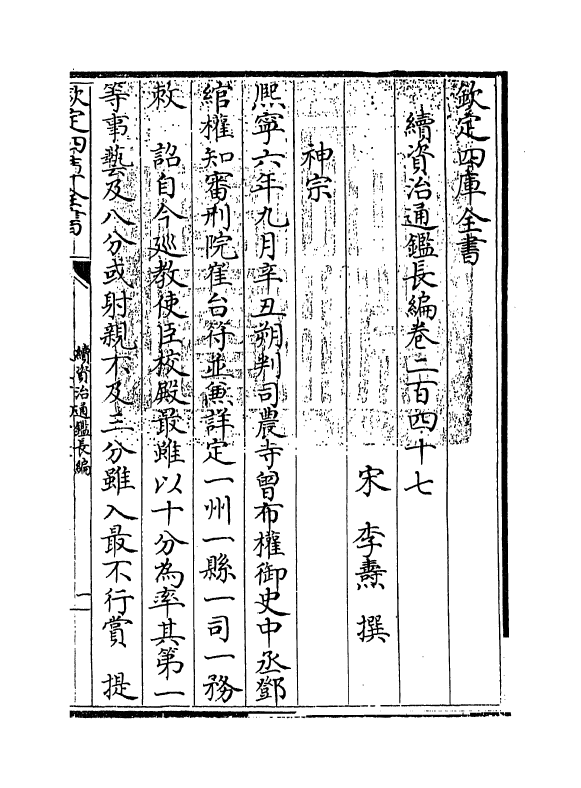 欽定四庫全書
續資治通鑑長編卷二百四十七
宋 李燾 撰
神宗
熈寧六年九月辛丑朔判司農寺曾布權御史中丞鄧
綰權知審刑院崔台符並兼詳定一州一縣一司一務
敕 詔自今廵教使臣校殿最雖以十分為率其第一
等事藝及八分或射親不及三分雖入最不行賞 提
欽定四庫全書
續資治通鑑長編
一